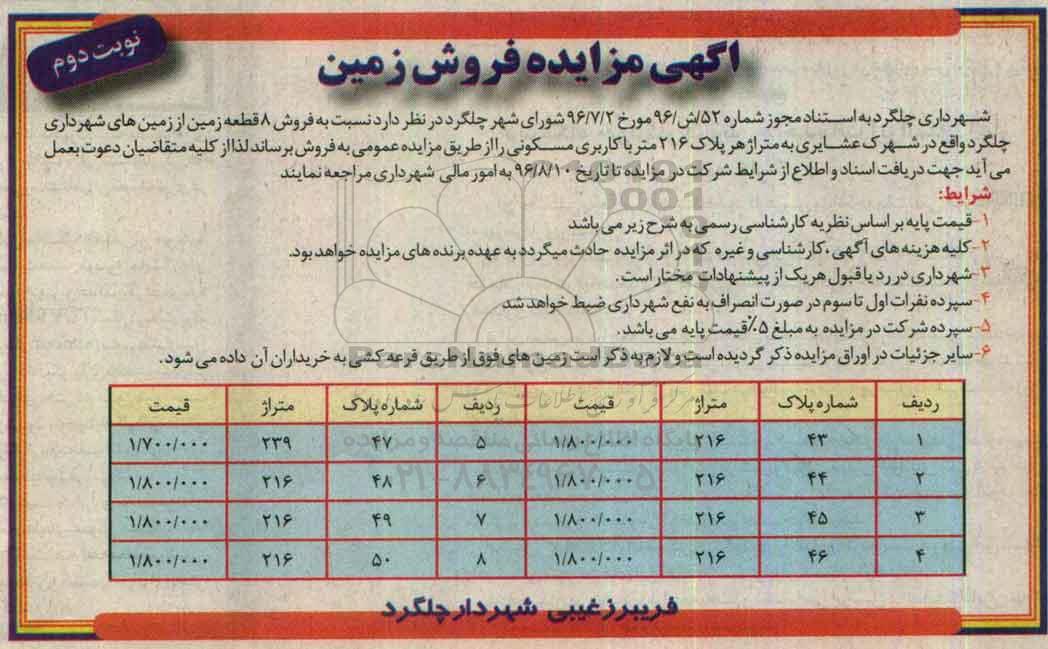 آگهی مزایده فروش زمین
نوبت دوم
شهرداری چلگرد به استناد مجوز شماره ۵۲/ش/۹۶ مورخ ۹۶/۷/۲ شورای شهر چلگرد در نظر دارد نسبت به فروش ۸ قطعه زمین از زمین های شهرداری
چلگرد واقع در شهرک عشایری به متراژ هر پلاک ۲۱۶ متر با کاربری مسکونی را از طریق مزایده عمومی به فروش برساند لذا از کلیه متقاضیان دعوت بعمل
می آید جهت دریافت اسناد و اطلاع از شرایط شرکت در مزایده تا تاریخ ۹۶/۸/۱۰ به امور مالی شهرداری مراجعه نمایند
شرایط:
۱-قیمت پایه بر اساس نظریه کارشناسی رسمی به شرح زیر می باشد
۲-کلیه هزینه های آگهی ،کارشناسی و غیره که در اثر مزایده حادث میگردد به عهده برنده های مزایده خواهد بود.
۳-شهرداری در رد یا قبول هریک از پیشنهادات مختار است.
۴-سپرده نفرات اول تا سوم در صورت انصراف به نفع شهرداری ضبط خواهد شد
۵-سپرده شرکت در مزایده به مبلغ ۵٪ قیمت پایه می باشد.
۶-سایر جزئیات در اوراق مزایده ذکر گردیده است و لازم به ذکر است زمین های فوق از طریق قرعه کشی به خریداران آن داده می شود.
ردیف شماره پلاک متراژ قیمت ردیف شماره پلاک متراژ قیمت
۱ ۴۳ ۲۱۶ ۱/۸۰۰/۰۰۰ ۵ ۴۷ ۲۳۹ ۱/۷۰۰/۰۰۰
۲ ۴۴ ۲۱۶ ۱/۸۰۰/۰۰۰ ۶ ۴۸ ۲۱۶ ۱/۸۰۰/۰۰۰
۳ ۴۵ ۲۱۶ ۱/۸۰۰/۰۰۰ ۷ ۴۹ ۲۱۶ ۱/۸۰۰/۰۰۰
۴ ۴۶ ۲۱۶ ۱/۸۰۰/۰۰۰ ۸ ۵۰ ۲۱۶ ۱/۸۰۰/۰۰۰
فریبرز غیبی شهردار چلگرد